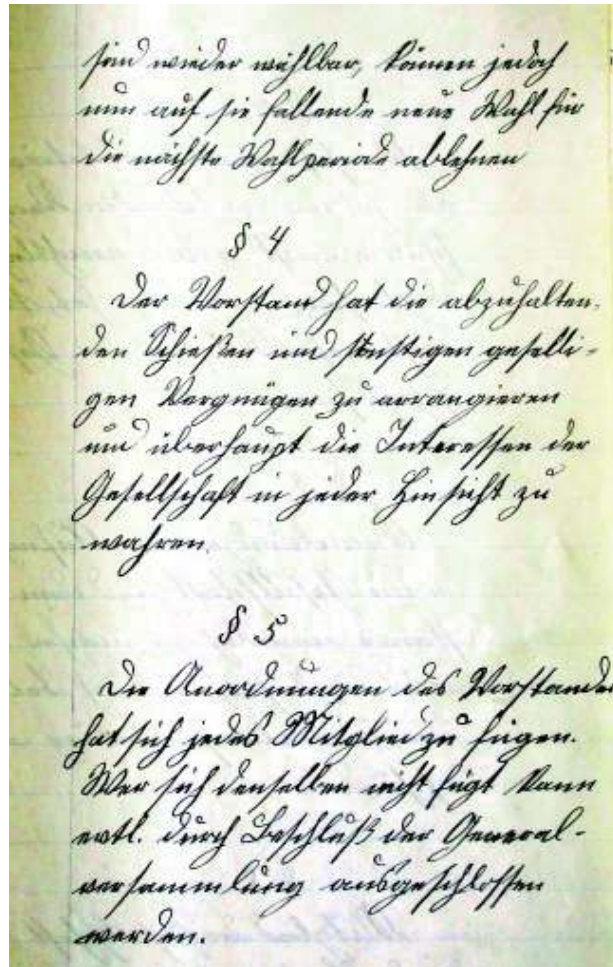 sind wieder wählbar, können jedoch
nun auf sie fallende neue Wahl für
die nächste Wahlperiode ablehnen
§ 4
Der Vorstand hat die abzuhalten-
den Schießen und sonstigen geselli-
gen Vergnügen zu arrangieren
und überhaupt die Interessen der
Gesellschaft in jeder Hinsicht zu
wahren.
§ 5
Den Anordnungen des Vorstandes
hat sich jedes Mitglied zu fügen.
Wer sich denselben nicht fügt kann
evtl. durch Beschluß der General-
versammlung ausgeschlossen
werden.